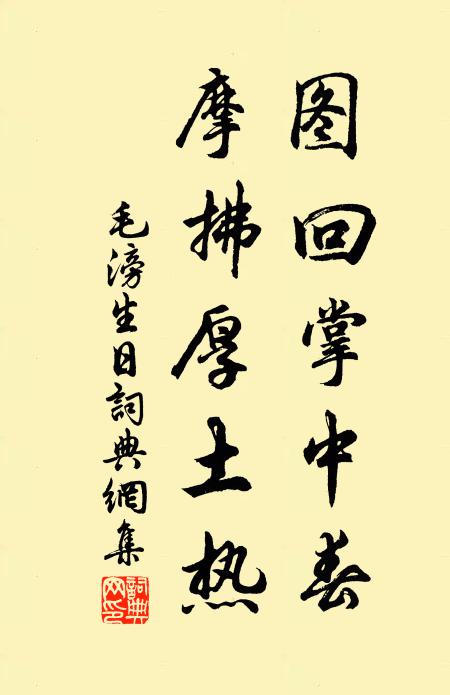 图回掌中春
摩拂厚土热
毛滂生日詞典網集
詞典网印